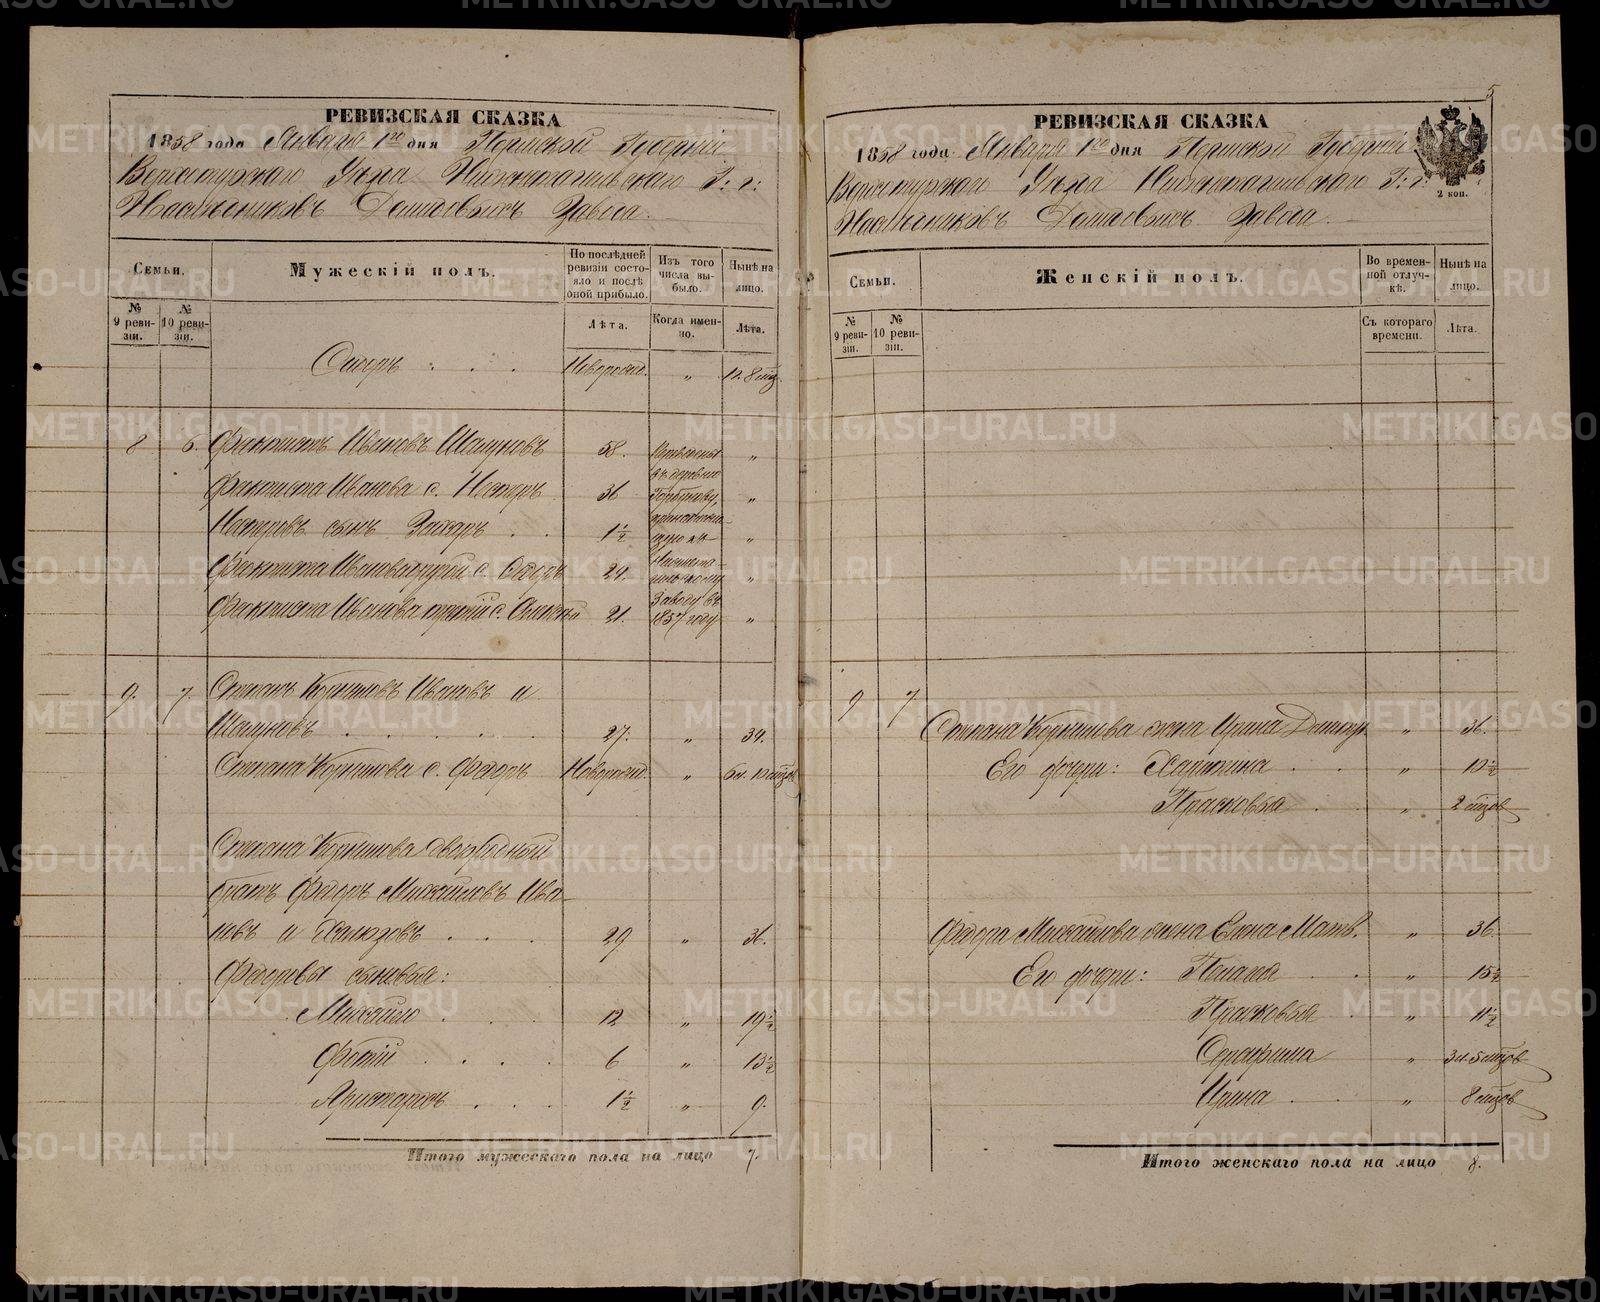 РЕВИЗСКАЯ СКАЗКА
1858 года Января 1го дня Пермской Губернии
Верхотурскаго Уезда Нижнетагильскаго Г: г:
Наследниковъ Демидовыхъ Завода.
Семьи.
Мужескій полъ.
По последней ревизіи состояло и послѣ оной прибыло.
Изъ того числа выбыло.
Нынѣ на лицо.
№ 9 ревизіи.
№ 10 ревизіи.
Лѣта.
Когда именно.
Лѣта.
Новорожд. " 12. 8 мцъ
8 6. Феоктистъ Ивановъ Шагуновъ 58. "
Феоктиста Иванова с. Несторъ 36 "
Несторовъ сынъ Захаръ 1½ "
Феоктиста Иванова другой с. Федоръ 24. "
Феоктиста Иванова третій с. Алексей 21. "
въ деревню
Горбунову,
Заводу въ
1857 году
9. 7. Степанъ Корниловъ Ивановъ и
Шагуновъ 27. " 34.
Степана Корнилова с. Федоръ Новорожд. " 6 л. 10 мцовъ
Степана Корнилова двоюродный
братъ Федоръ Михайловъ Ива-
новъ и Халюзовъ 29 " 36.
Федоровы сыновья:
Михайло 12 " 19½
Фотій 6 " 13½
Аристархъ 1½ " 9.
Итого мужескаго пола на лицо 7.
5
РЕВИЗСКАЯ СКАЗКА
1858 года Января 1го дня Пермской Губерніи
Верхотурскаго Уезда Нижнетагильскаго Г: г:
Наследниковъ Демидовыхъ Завода.
2 коп.
Семьи.
Женскій полъ.
Во временной отлучкѣ.
Нынѣ на лицо.
№ 9 ревизіи.
№ 10 ревизіи.
Съ котораго времени.
Лѣта.
9 7 Степана Корнилова жена Ирина " 36.
Его дочери: " 10½
Прасковья " 2 мцовъ
Федора Михайлова жена Елена Матв. " 36.
Его дочери: Пелагея " 15½
Прасковья " 11½
Серафима " 3 л. 5 мцовъ
Ирина " 8 мцовъ
Итого женскаго пола на лицо 8.
METRIKI.GASO-URAL.RU